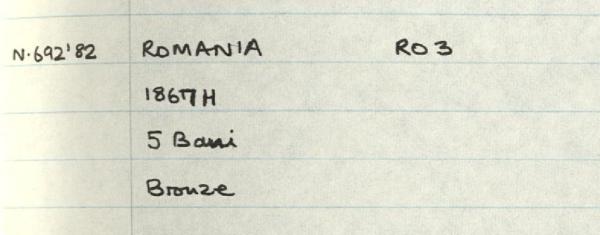 N.692'82 ROMANIA RO 3
1867H
5 Bani
Bronze